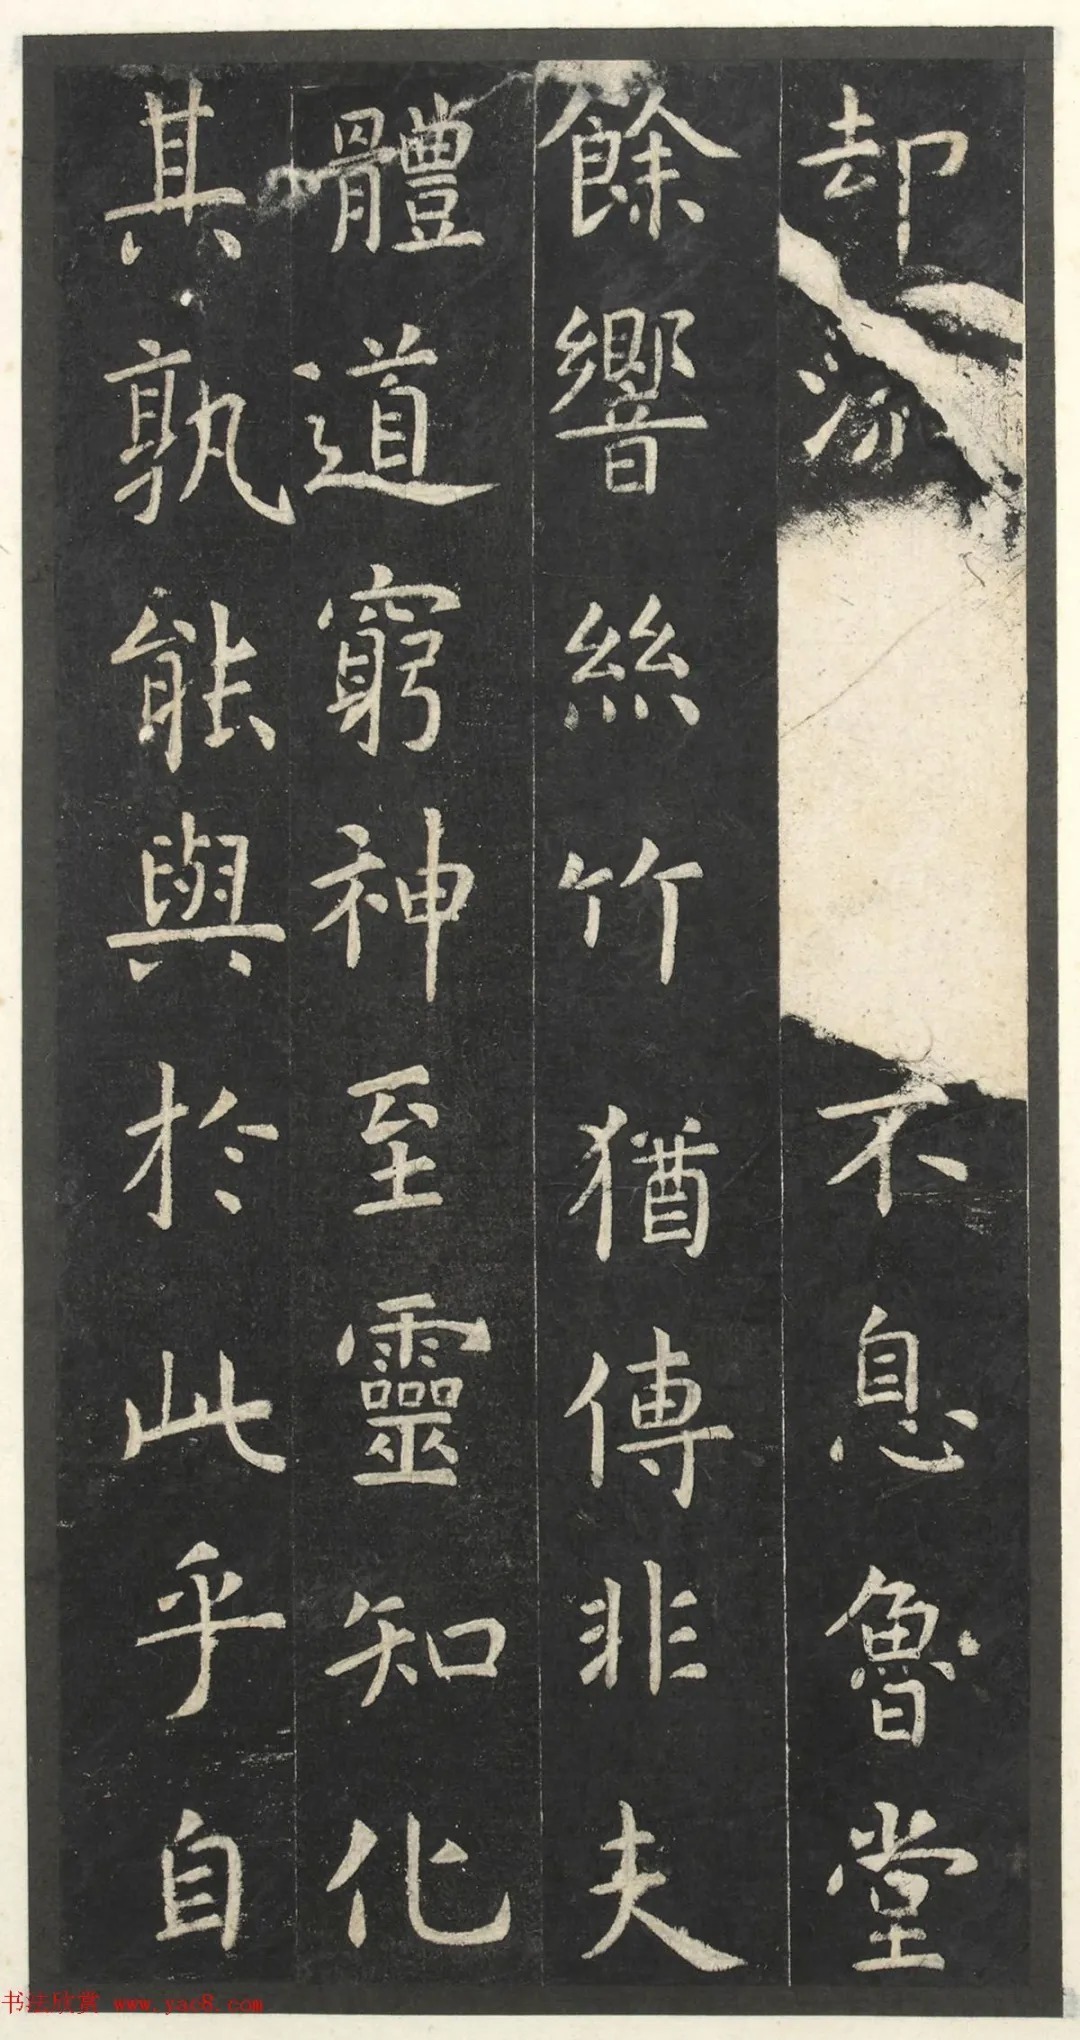 却流不息魯堂
餘響絲竹猶傳非夫
體道窮神至靈知化
其孰能與於此乎自
书法欣赏 www.yac8.com